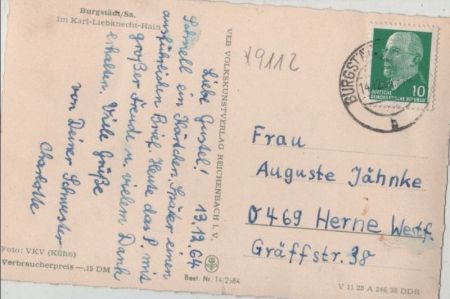 Burgstädt/Sa.
Im Karl-Liebknecht-Hain
Liebe Gustel! 13.12.64
Schnell ein Kärtchen. Später einen
ausführlichen Brief. Heute das P. mit
großer Freude u. vielem Dank
erhalten. Viele Grüße
von Deiner Schwester
Charlotte
Foto: VKV (Kühn)
Verbraucherpreis —,15 DM
VEB VOLKSKUNSTVERLAG REICHENBACH I. V.
Best. Nr. 14/2964
9112
BURGSTÄDT
DEUTSCHE
DEMOKRATISCHE REPUBLIK
10
b
Frau
Auguste Jähnke
0469 Herne Westf.
Gräffstr. 38
V 11 28 A 246/38 DDR